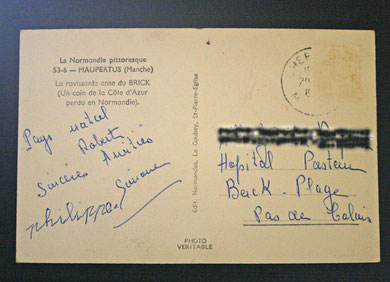 La Normandie pittoresque
53-6 — MAUPERTUS (Manche)
La ravissante anse du BRICK
(Un coin de la Côte d'Azur
perdu en Normandie).
Pays natal
Robert
Sincères Amitiés
Simone
Philippe
Edit. Normandes, Le Goubey, St-Pierre-Eglise
PHOTO
VERITABLE
Hopital Pasteur
Berck-Plage
Pas de Calais